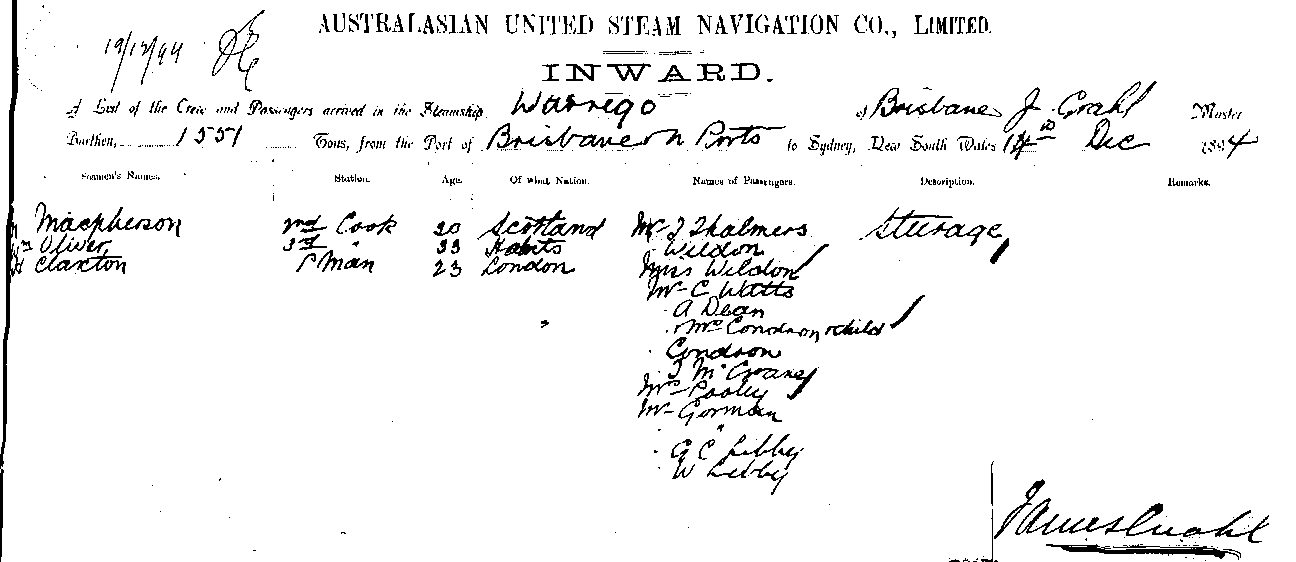 AUSTRALASIAN UNITED STEAM NAVIGATION CO., LIMITED.
19/12/94
INWARD.
A List of the Crew and Passengers arrived in the Steamship Warrego of Brisbane J. Grahl Master
Burthen, 1551 Tons, from the Port of Brisbane & N Ports to Sydney, New South Wales 14th Dec 1894
Seamen's Names. Station. Age. Of what Nation. Names of Passengers. Description. Remarks.
Macpherson 2nd Cook 20 Scotland Mr J Thalmers Sturage
Oliver 3rd " 33 Wildon
Claxton 23 London Miss Wildon
Mr C Watts
A Dean
Mrs Condron & child
Condron
Mrs Pooley
Mr Gorman
"
G C Libby
W Libby
James Grahl